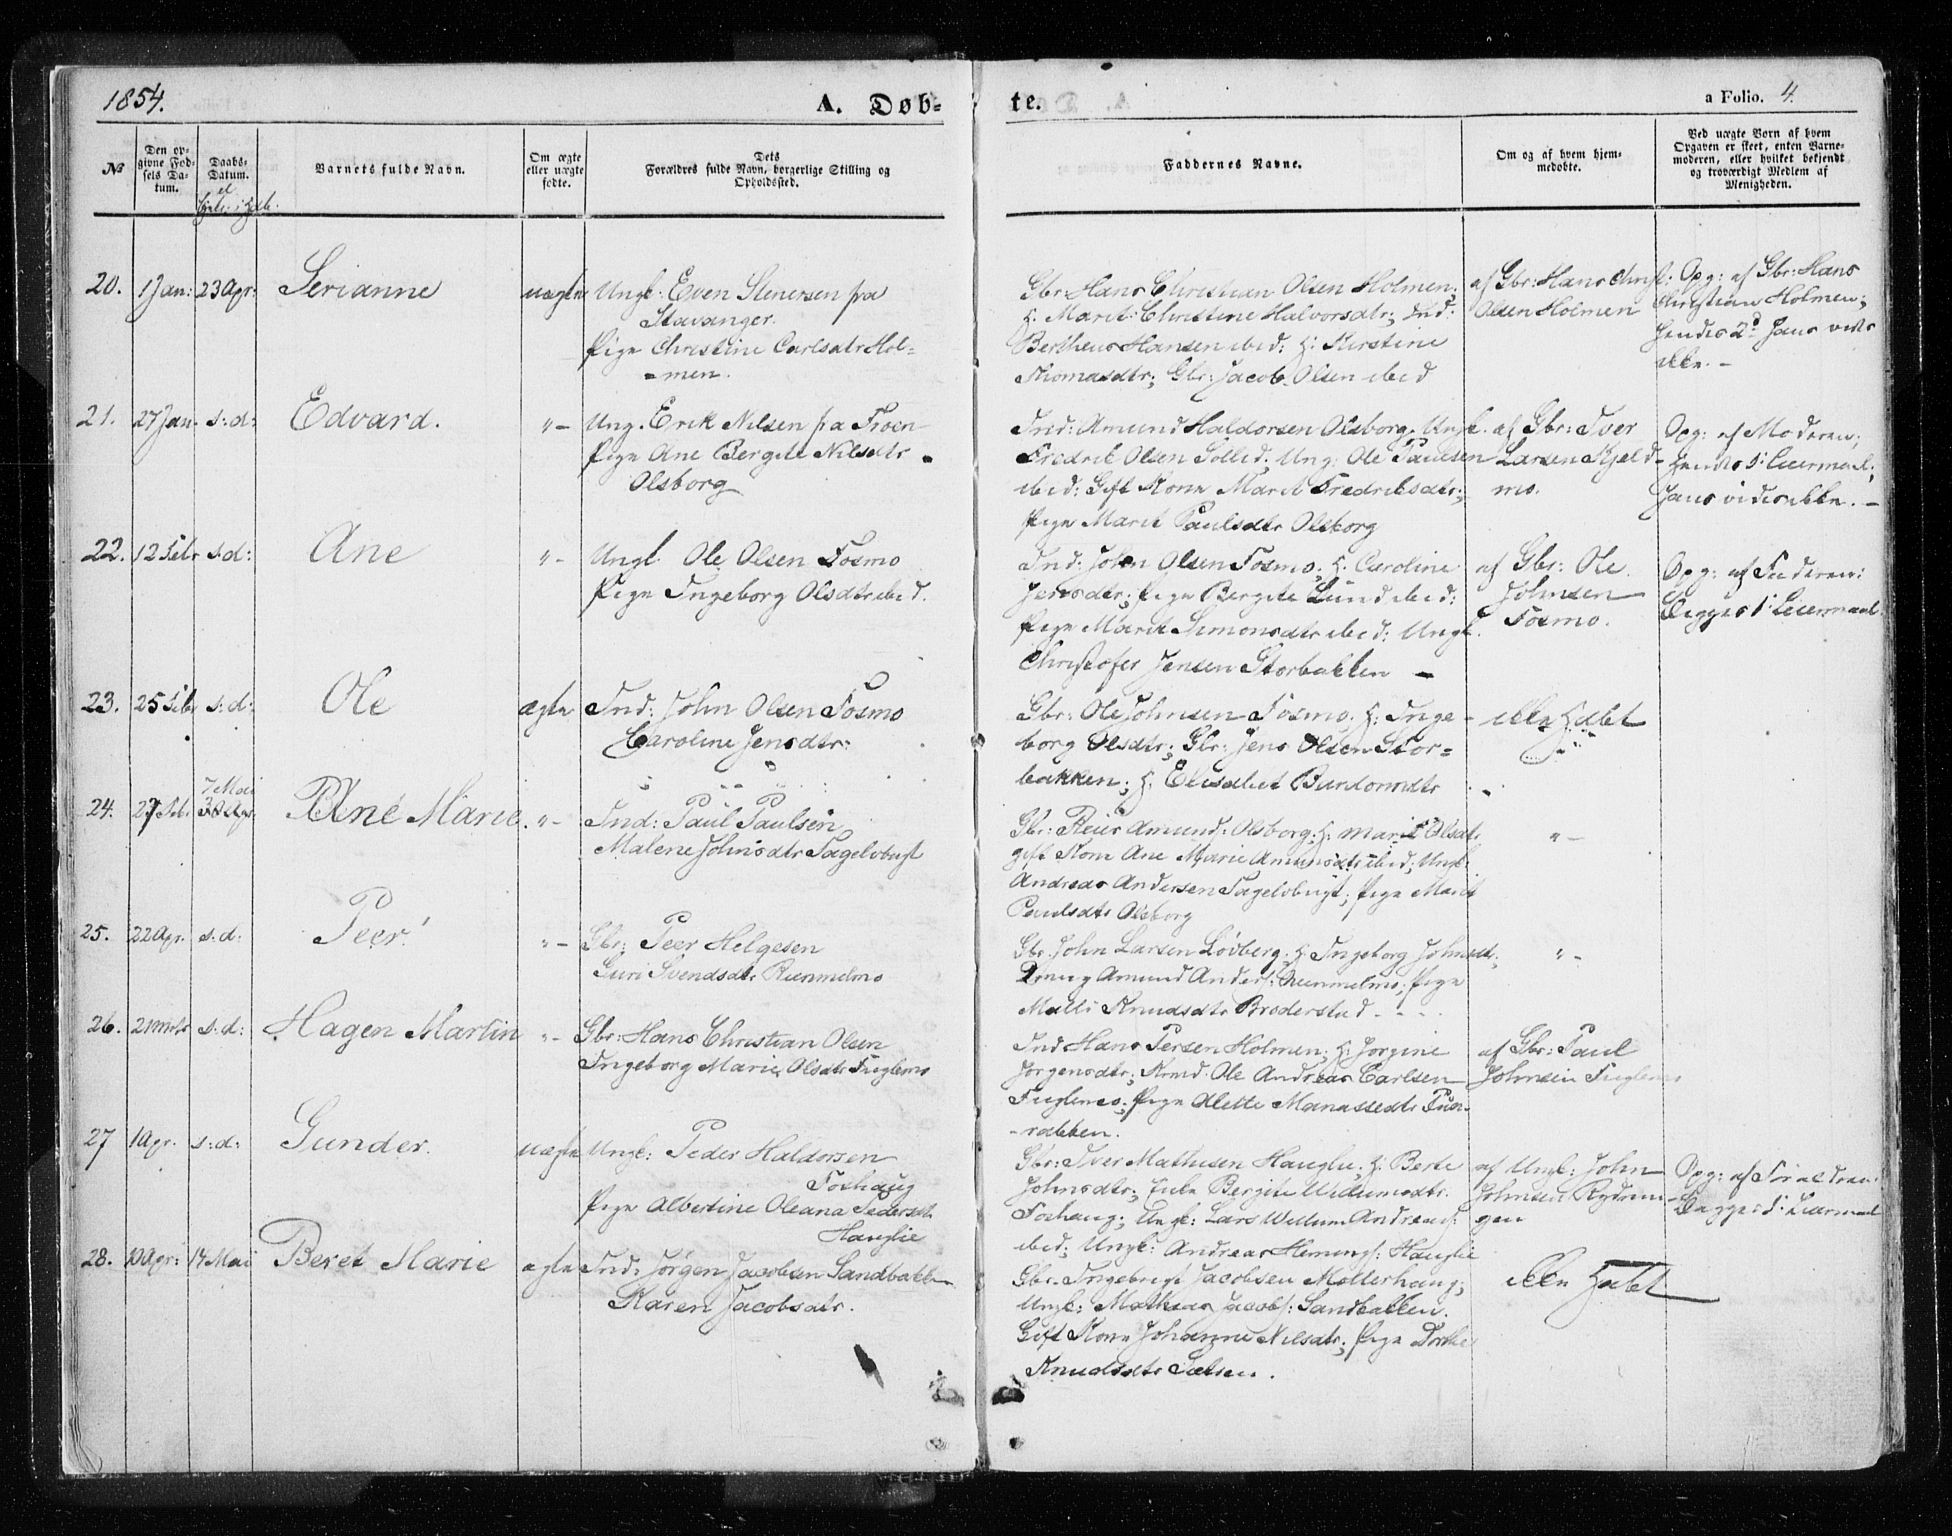 1854.
A. Døb-
te.
a Folio. 4.
No
Den op-
givne Fød-
sels Da-
tum.
Daabs-
Datum.
el
Barnets fulde Navn.
Om ægte
eller uægte
fødte.
Dets
Forældres fulde Navn, borgerlige Stilling og
Opholdssted.
Faddernes Navne.
Om og af hvem hjem-
medøbte.
Ved uægte Børn af hvem
Opgaven er skeet, enten Barne-
moderen, eller hvilket bekjendt
og troværdigt Medlem af
Menigheden.
20. 1 Jan: 23 Apr: Serianne uægte Ungk: Even Stenersen fra
Stavanger.
Pige Christine Carlsdtr Hol=
=men.
Gbr: Hans Christian Olsen Holmen;
H. Marit Christine Halvorsdtr; Ind:
Bertheus Hansen ibid: H: Kirstine
Thomasdtr; Gbr: Jacob Olsen ibid
af Gbr: Hans Christ:
Olsen Holmen
Opg: af Gbr: Hans
Christian Holmen;
hendes 2d hans vides
ikke. -
21. 27 Jan. s: d: Edvard. "- Ung. Erik Nilsen fra Troen
Pige Ane Bergite Nilsdtr
Olsborg
Ind: Amund Haldorsen Olsborg. Ungk.
Fredrik Olsen Sollid; Ung: Ole Paulsen
ibid: Gift Kone Marit Fredriksdtr;
Pige Marit Paulsdtr Olsborg
af Gbr: Iver
Larsen Kjeld-
mo.
Opg: af Moderen;
hendes 1: Leiermaal;
hans vides ikke. -
22. 12 Febr s: d: Ane "- Ungk. Ole Olsen Fosmo
Pige Ingeborg Olsdtr ibid.
Ind: John Olsen Fosmo; H. Caroline
Jensdtr; Pige Bergite Lund ibid:
Pige Marit Simonsdtr ibid: Ungk.
Christofer Jensen Storbakken -
af Gbr: Ole
Johnsen
Fosmo.
Opg: af Faderen:
Begges 1: Leiermaal.
23. 25 Febr s: d: Ole ægte Ind: John Olsen Fosmo
Caroline Jensdtr:
Gbr: Ole Johnsen Fosmo. H: Inge-
borg Olsdtr; Gbr: Jens Olsen Stor=
bakken; H. Elisabet Bardonsdtr
ikke Hdbt
7 Mai
24. 27 Feb. 30 Apr. Ane Marie. "- Ind: Paul Paulsen
Malene Johnsdtr Sagelvbugt
Gbr: Peder Amund: Olsborg; H: Marit Olsdtr
gift Kone Ane Marie Amundsdtr ibid; Ungk:
Andreas Andersen Sagelvbugt; Pige Marit
Paulsdtr Olsborg
"-
25. 22 Apr. s: d: Peer. "- Gbr: Peer Helgesen
Guri Svendsdtr Rundmelmo
Gbr: John Larsen Løvberg. H: Ingeborg Johnsdt;
Amund Anders: Rundmelmo; Pige
Malli Knudsdtr Broderstad - - -
"-
26. 21 Mrts s: d: Hagen Martin "- Gbr: Hans Christian Olsen
Ingeborg Marie Olsdtr Fuglemo
Ind Hans Persen Holmen; H: Jørgine
Jørgensdtr; Ole Andreas Carlsen
Fuglemo; Pige Alette Manassedtr Fur-
-rakken.
af Gbr: Paul
Johnsen Fuglemo
27 1 Apr. s: d: Gunder. uægte Ungk: Peder Haldorsen
Foshaug
Pige Albertine Oleana Pedersdt
Hauglie
Gbr: Iver Mathisen Hauglie. H: Berte
Johnsdtr; Enke Bergite Willumsdtr.
Foshaug; Ungk: Lars Willum Andreas:
ibid; Ungk: Andreas Hemings: Hauglie
af Ungk: John
Johnsen Rydnin-
gen
Opg: af Forældren:
Begges 1: Leiermaal
28. 10 Apr: 14 Mai Beret Marie ægte Ind: Jørgen Jacobsen Sandbakk
Karen Jacobsdtr.
Gbr. Ingebrigt Jacobsen Møllerhaug;
Ungk: Mathias Jacobs: Sandbakken.
Gift Kone Johanne Nilsdtr; Pige Dorthe
Knudsdtr Sætren.
ikke Hdbt